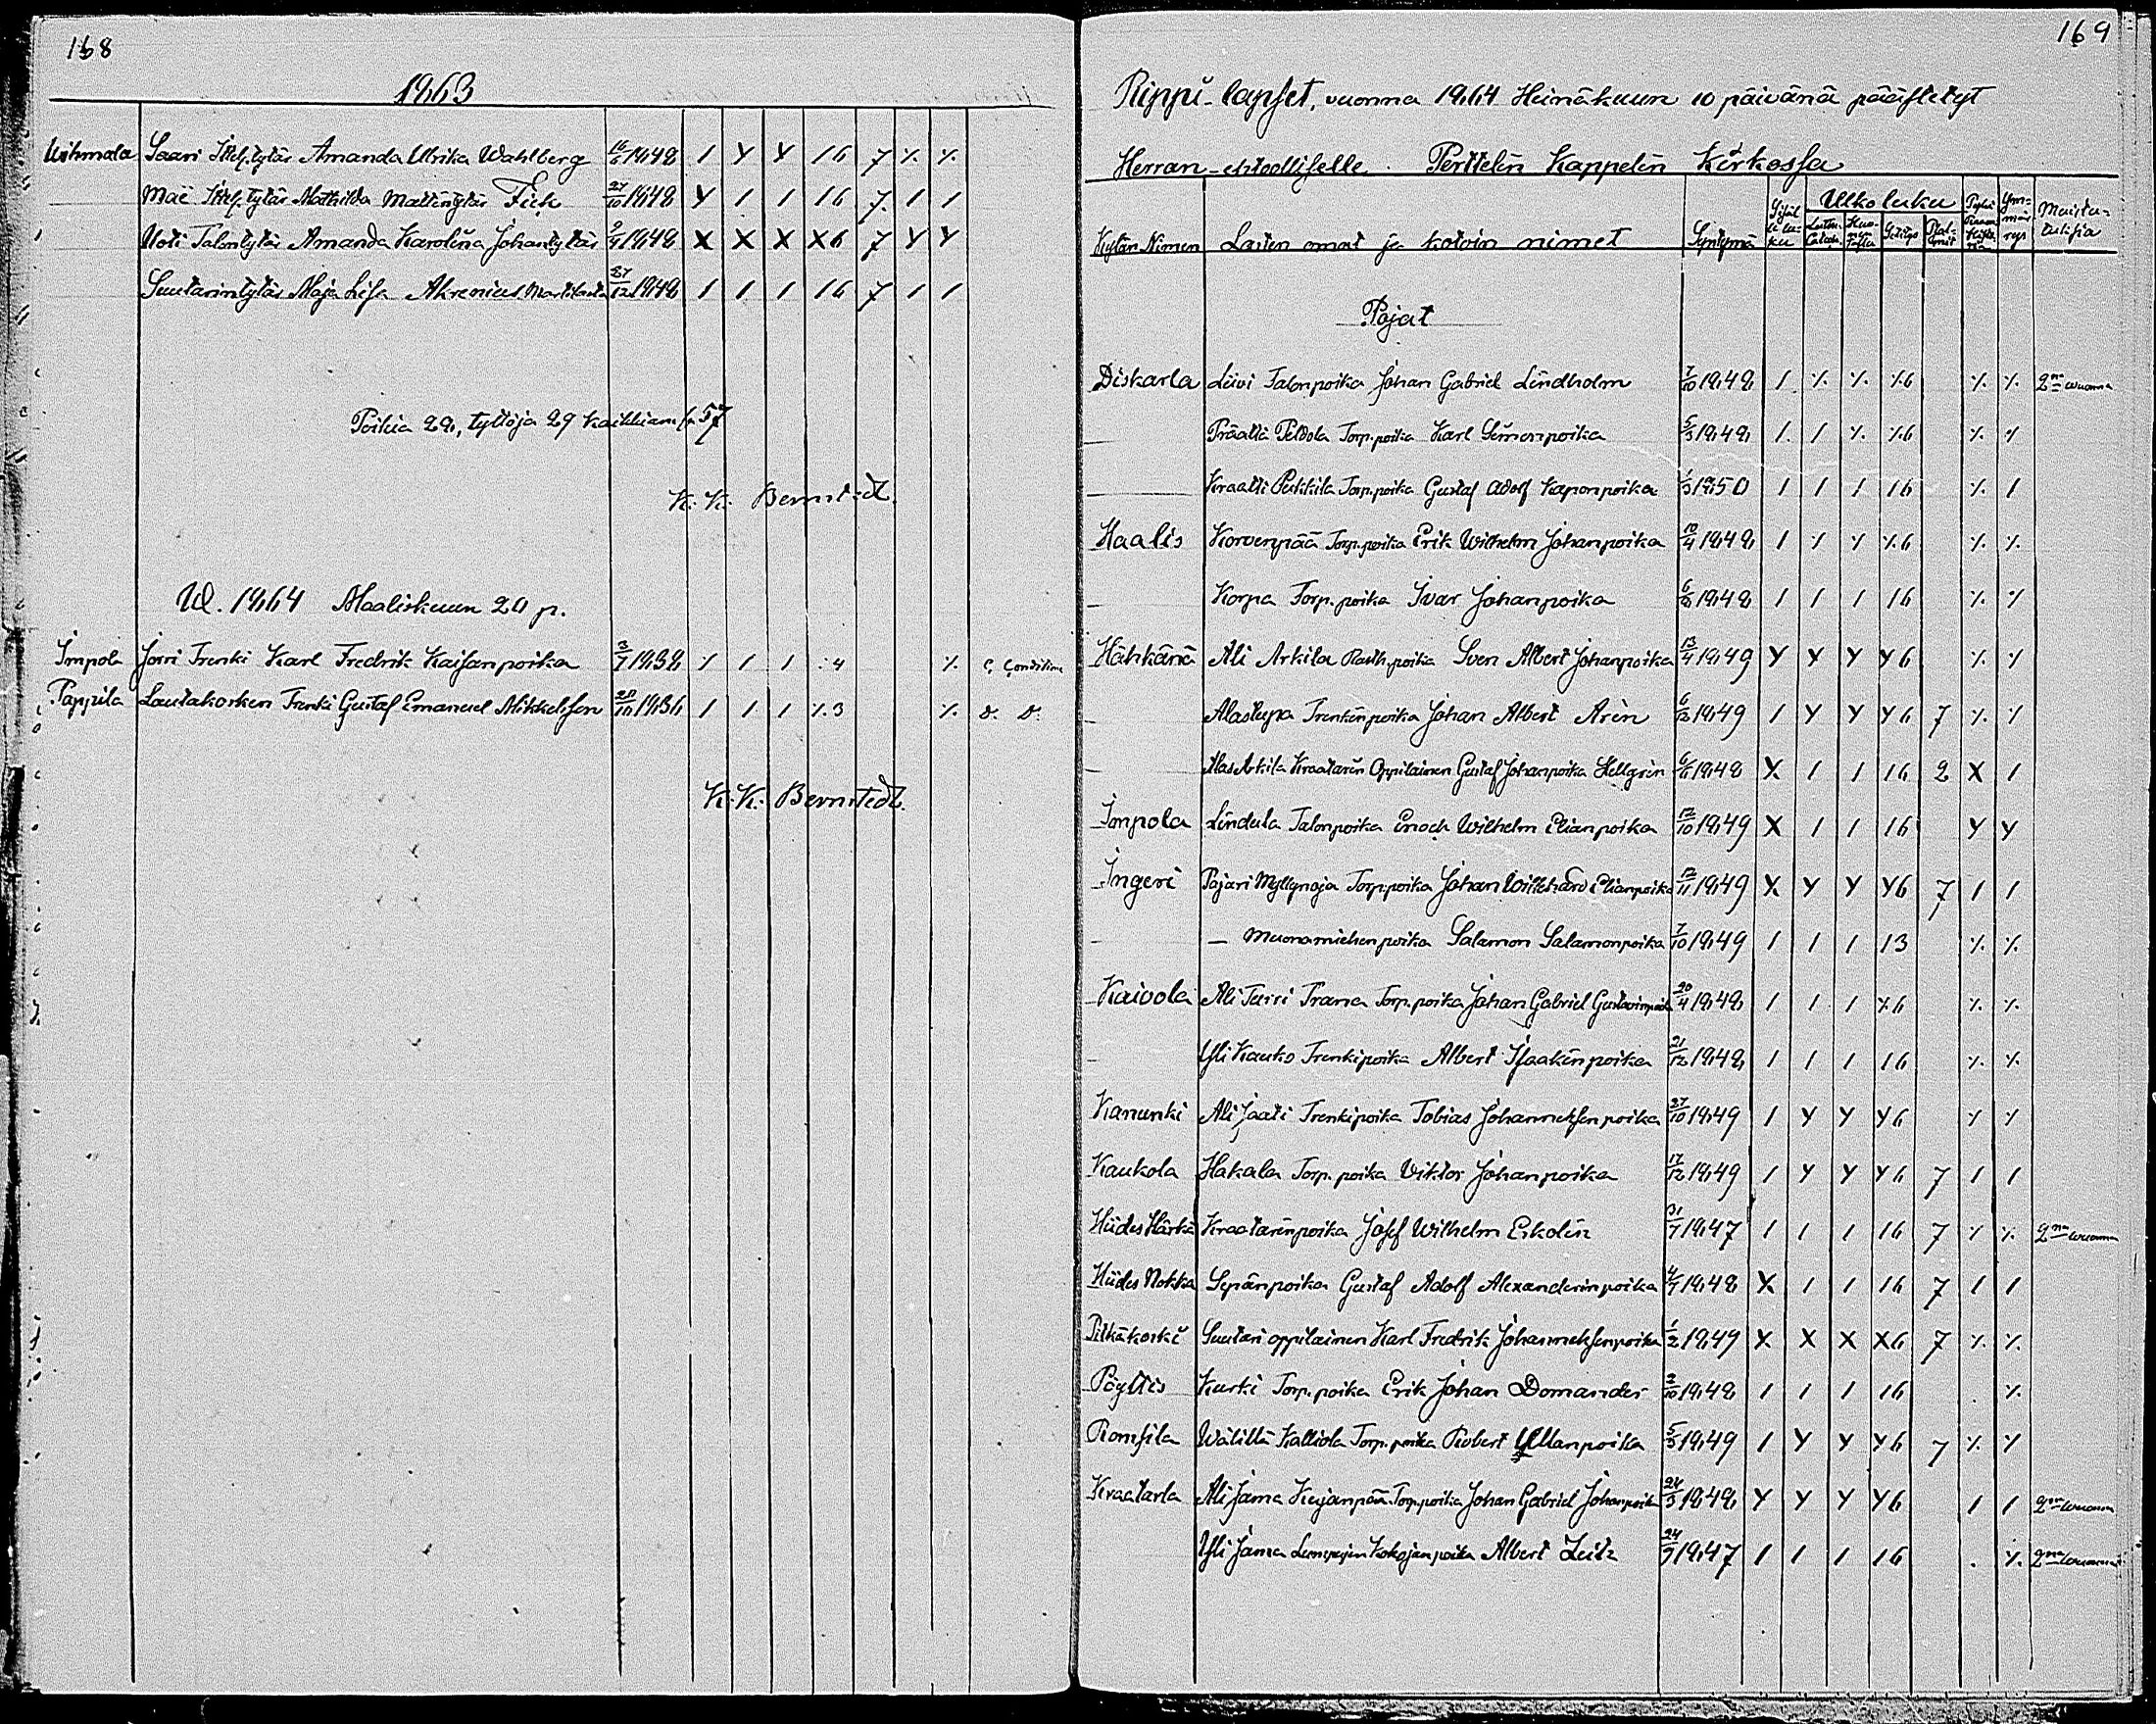 168
1863
Uihmala Saari Itell. tytär Amanda Ulrika Wahlberg 16/6 1848 / Y Y 16 7 ٪ ٪
Mäë Itell. tytär Mathilda Mattintytär Fick 27/10 1848 Y / / 16 7 / /
Uoti Talontytär Amanda Karolina Johantytär 9/9 1848 X X X X6 7 Y Y
Suutarintytär Maja Lisa Akrenius 27/12 1848 / / / 16 7 / /
Poikia 28, tyttöjä 29 Kaikkiansa 57
K. K. Bernstedt.
W. 1864 Maaliskuun 20 p.
Impola Jöiri Trenki Karl Fredrik Kaisanpoika 3/7 1838 ٪ / / 4 ٪ C. Conditim
Pappila Lautakosken Trenki Gustaf Emanuel Mikkelsson 1836 / / / ٪3 ٪ D. D.
K. K. Bernstedt.
169
Rippi-lapset, vuonna 1864 Heinäkuun 10 päivänä päästetyt
Herran-ehtoolliselle Perttelin Kappelin Kirkossa
Kylän Nimen Lasten omat ja kotoin nimet Syntymä Sisälluku Ulkoluku Ymmärrys Muistutuksia
Pojat
Diskarla Liivi Talonpoika Johan Gabriel Lindholm 7/10 1848 / ٪ ٪ ٪6 ٪ ٪ 2na wuonna
Präätti Peldola Torp.poika Karl Simonpoika 5/3 1848 / / ٪ ٪6 ٪ ٪
Kraatti Pukkila Torp.poika Gustaf Adolf Kaponpoika 1/3 1850 / / / 16 ٪ /
Haalis Korvenpää Torp.poika Erik Wilhelm Johanpoika 10/4 1848 / ٪ ٪ ٪6 ٪ ٪
Korpa Torp. poika Ivar Johanpoika 6/8 1848 / / / 16 ٪ ٪
Hähkänä Ali Arkila Rasth.poika Sven Albert Johanpoika 13/4 1849 Y Y Y Y6 ٪ ٪
Alastupa Trenkinpoika Johan Albert Arèn 6/12 1849 / Y Y Y6 7 ٪ ٪
Alas Arkila Kraatarin Oppilainen Gustaf Johanpoika Hellgrèn 6/6 1848 X / / 16 2 X /
Impola Lindula Talonpoika Enoch Wilhelm Elianpoika 12/10 1849 X / / 16 Y Y
Ingeri Pajari Myllynoja Torp.poika Johan Willehard Elianpoika 12/11 1849 X Y Y Y6 7 / /
— Muonamiehenpoika Salamon Salamonpoika 7/10 1849 / / / 13 ٪ ٪
Kaivola Ali Turri Trana Torp.poika Johan Gabriel Gustavinpoika 20/4 1848 / / / ٪6 ٪ ٪
Yli Kauko Trenkipoika Albert Isaakinpoika 21/12 1848 / / / 16 ٪ ٪
Kanunki Ali Jaati Trenkipoika Tobias Johanneksenpoika 27/10 1849 / Y Y Y6 ٪ ٪
Kaukola Hakala Torp. poika Viktor Johanpoika 17/12 1849 / Y Y Y6 7 / /
Hiides Härkä Kraatarinpoika Josef Wilhelm Eskolin 31/7 1847 / / / 16 7 ٪ ٪ 2na wuonna
Hiides Nokka Sepänpoika Gustaf Adolf Alexanderinpoika 4/7 1848 X / / 16 7 / /
Pitkäkoski Suutari oppilainen Karl Fredrik Johanneksenpoika 1/2 1849 X X X X6 7 ٪ ٪
Pöyltis Kurki Torp. poika Erik Johan Domander 2/10 1848 / / / 16 ٪
Romsila Wälillä Kalliola Torp.poika Robert Yllanpoika 5/5 1849 / Y Y Y6 7 ٪ ٪
Kraatarla Ali Jama Kujanpään Torp.poika Johan Gabriel Johanpoika 24/3 1848 Y Y Y Y6 / / 2na wuonna
Yli Jama Lumpujen Kokojanpoika Albert Zeitz 24/9 1847 / / / 16 ٪ 2na wuonna